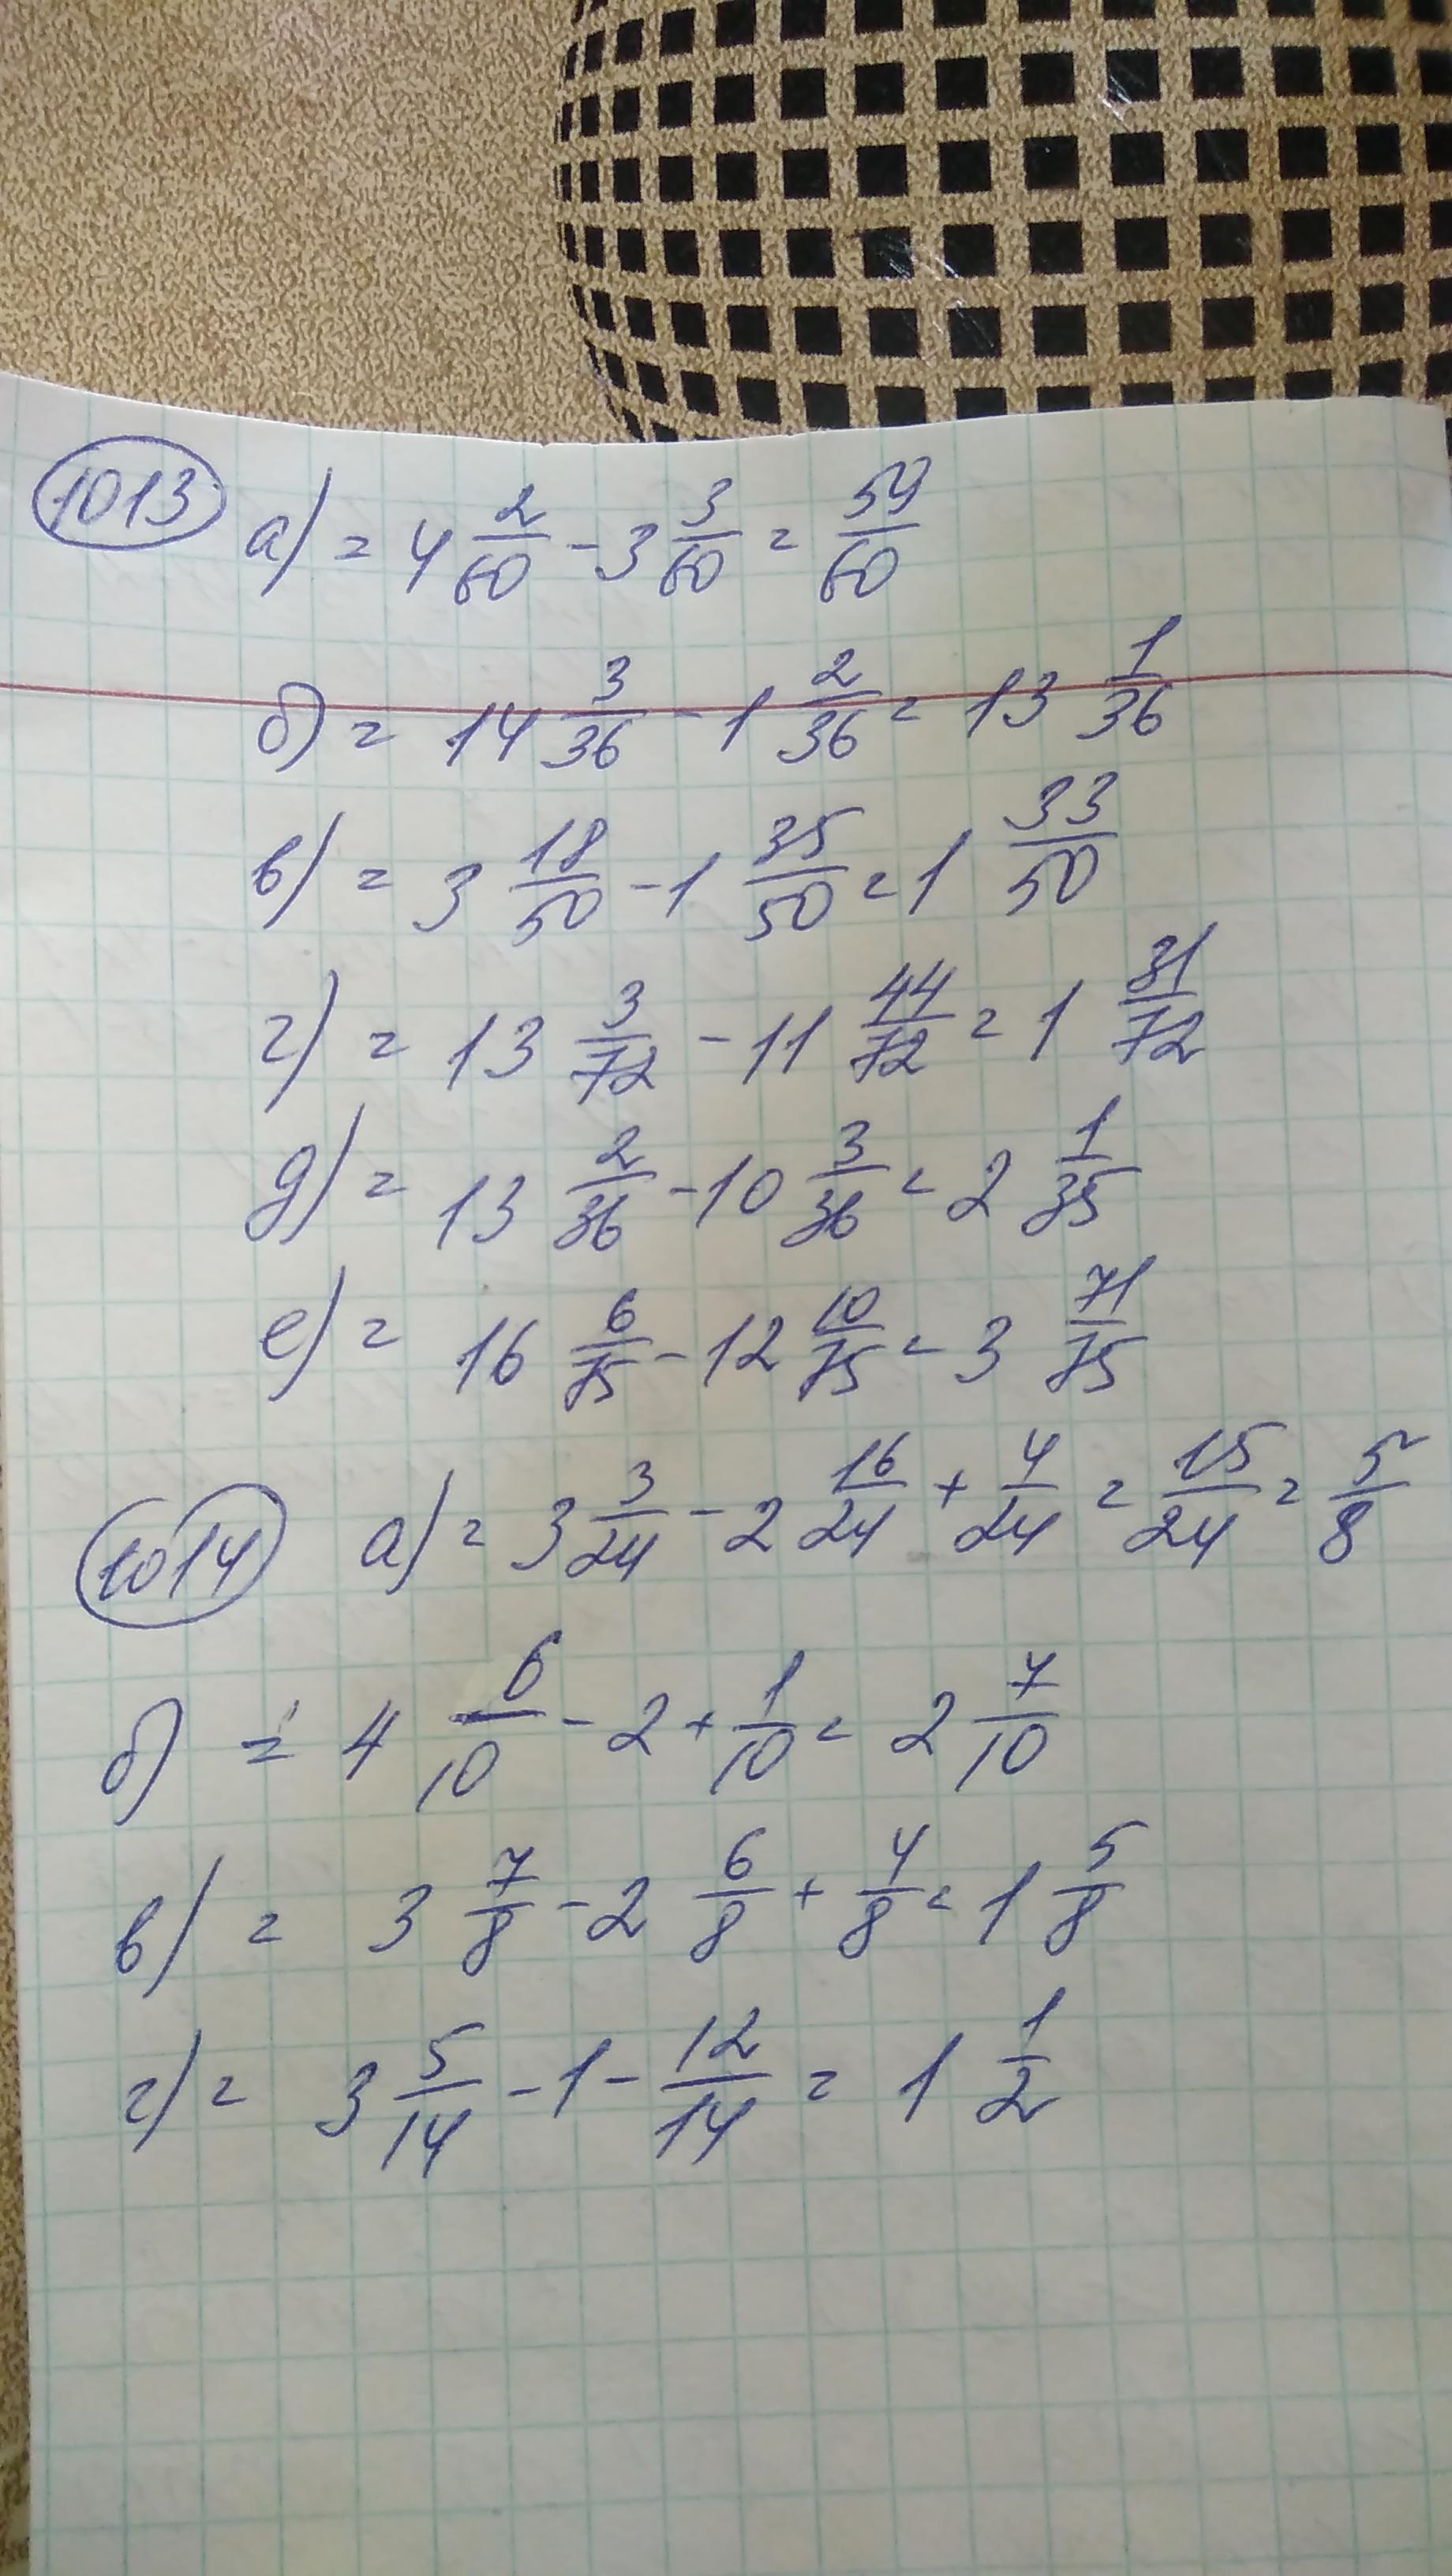 1013 а) = 4 2/60 - 3 3/60 = 59/60
б) = 14 3/36 - 1 2/36 = 13 1/36
в) = 3 18/50 - 1 35/50 = 1 33/50
г) = 13 3/72 - 11 44/72 = 1 31/72
д) = 13 2/36 - 10 3/36 = 2 1/35
е) = 16 6/75 - 12 10/75 = 3 71/75
1014 а) = 3 3/24 - 2 16/24 + 4/24 = 15/24 = 5/8
б) = 4 6/10 - 2 + 1/10 = 2 7/10
в) = 3 7/8 - 2 6/8 + 4/8 = 1 5/8
г) = 3 5/14 - 1 - 12/14 = 1 1/2